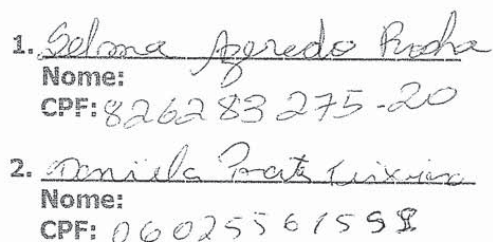 1. Selma Azeredo Rocha
Nome:
CPF: 826283275-20
2. Daniela Prates Teixeira
Nome:
CPF: 06025561558